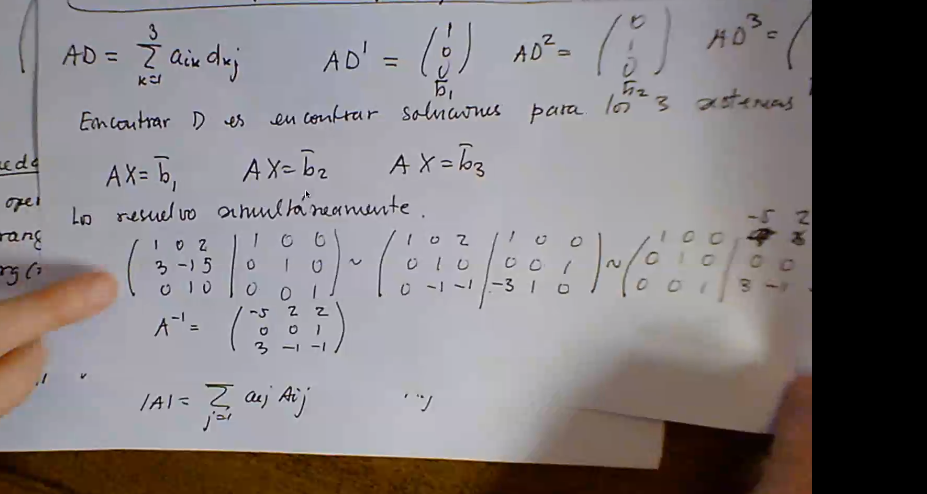 AD = ∑ₖ₌₁³ aᵢₖ dₖⱼ AD¹ = (1 0 0) b̄₁ AD² = (0 1 0) b̄₂ AD³ = (
Encontrar D es encontrar soluciones para los 3 sistemas
AX = b̄₁ AX = b̄₂ AX = b̄₃
Lo resuelvo simultáneamente.
-5 2
( 1 0 2 | 1 0 0 ) ~ ( 1 0 2 | 1 0 0 ) ~ ( 1 0 0 |
3 -1 5 | 0 1 0 0 1 0 | 0 0 1 0 1 0 | 0 0
0 1 0 | 0 0 1 0 -1 -1 | -3 1 0 0 0 1 | 3 -1
A⁻¹ = ( -5 2 2
0 0 1
3 -1 -1 )
|A| = ∑ⱼ₌₁ aᵢⱼ Aᵢⱼ